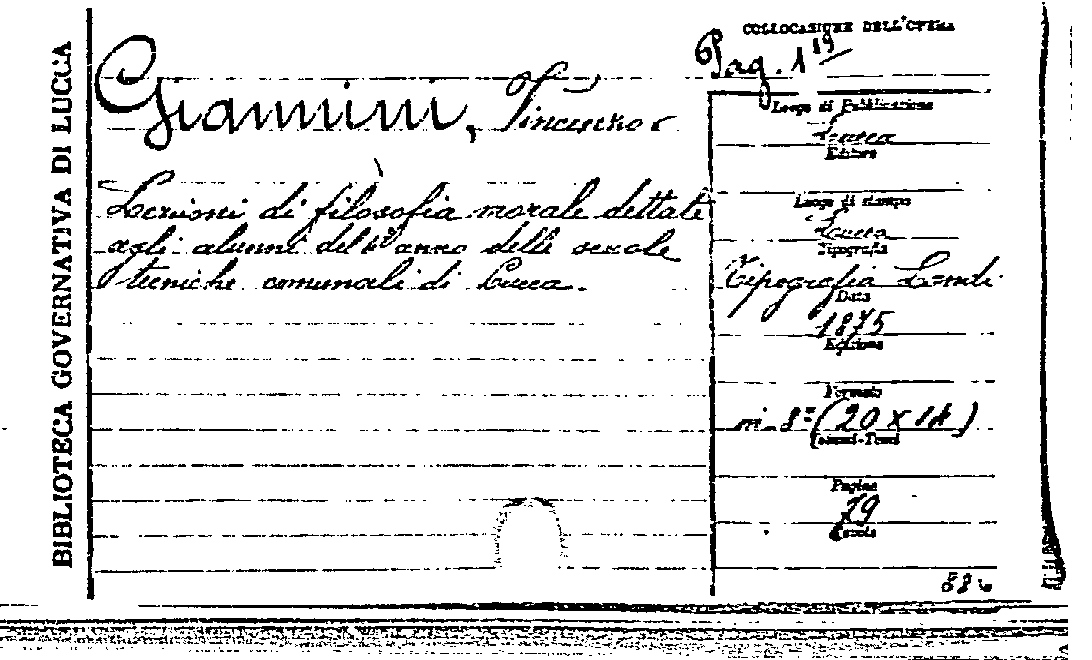 BIBLIOTECA GOVERNATIVA DI LUCCA
COLLOCAZIONE DELL'OPERA
Pag. 1
Giannini, Vincenzo
Lezioni di filosofia morale dettate
agli alunni del anno delle scuole
tecniche comunali di Lucca.
Luogo di Pubblicazione
Lucca
Editore
Luogo di stampa
Lucca
Tipografia
Tipografia Landi
Data
1875
Edizione
Formato
in-8º (20 x 14)
Pagine
79